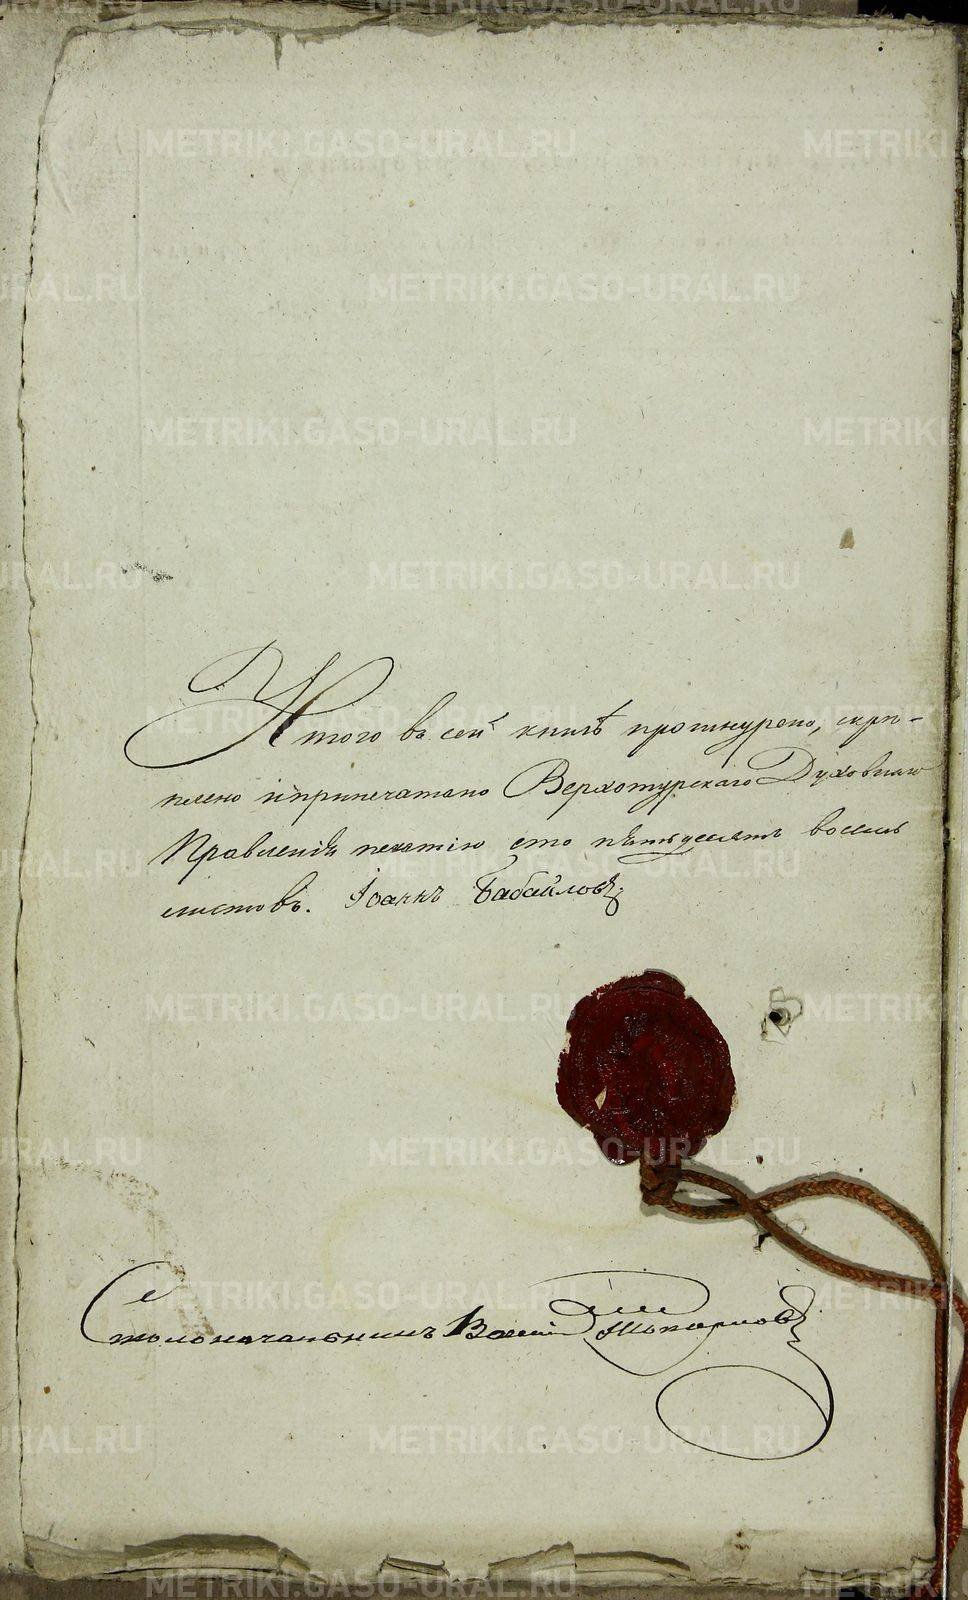 Итого въ сей книгѣ прошнурено, скрѣ-
плено и припечатано Верхотурскаго Духовнаго
Правленія печатію сто пятьдесятъ восемь
листовъ. Іоаннъ Бабайловъ
Столоначальникъ Василій
METRIKI.GASO-URAL.RU